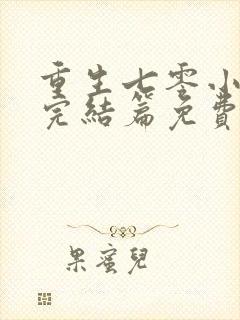 重生七零小
完結篇免費
果蜜兒